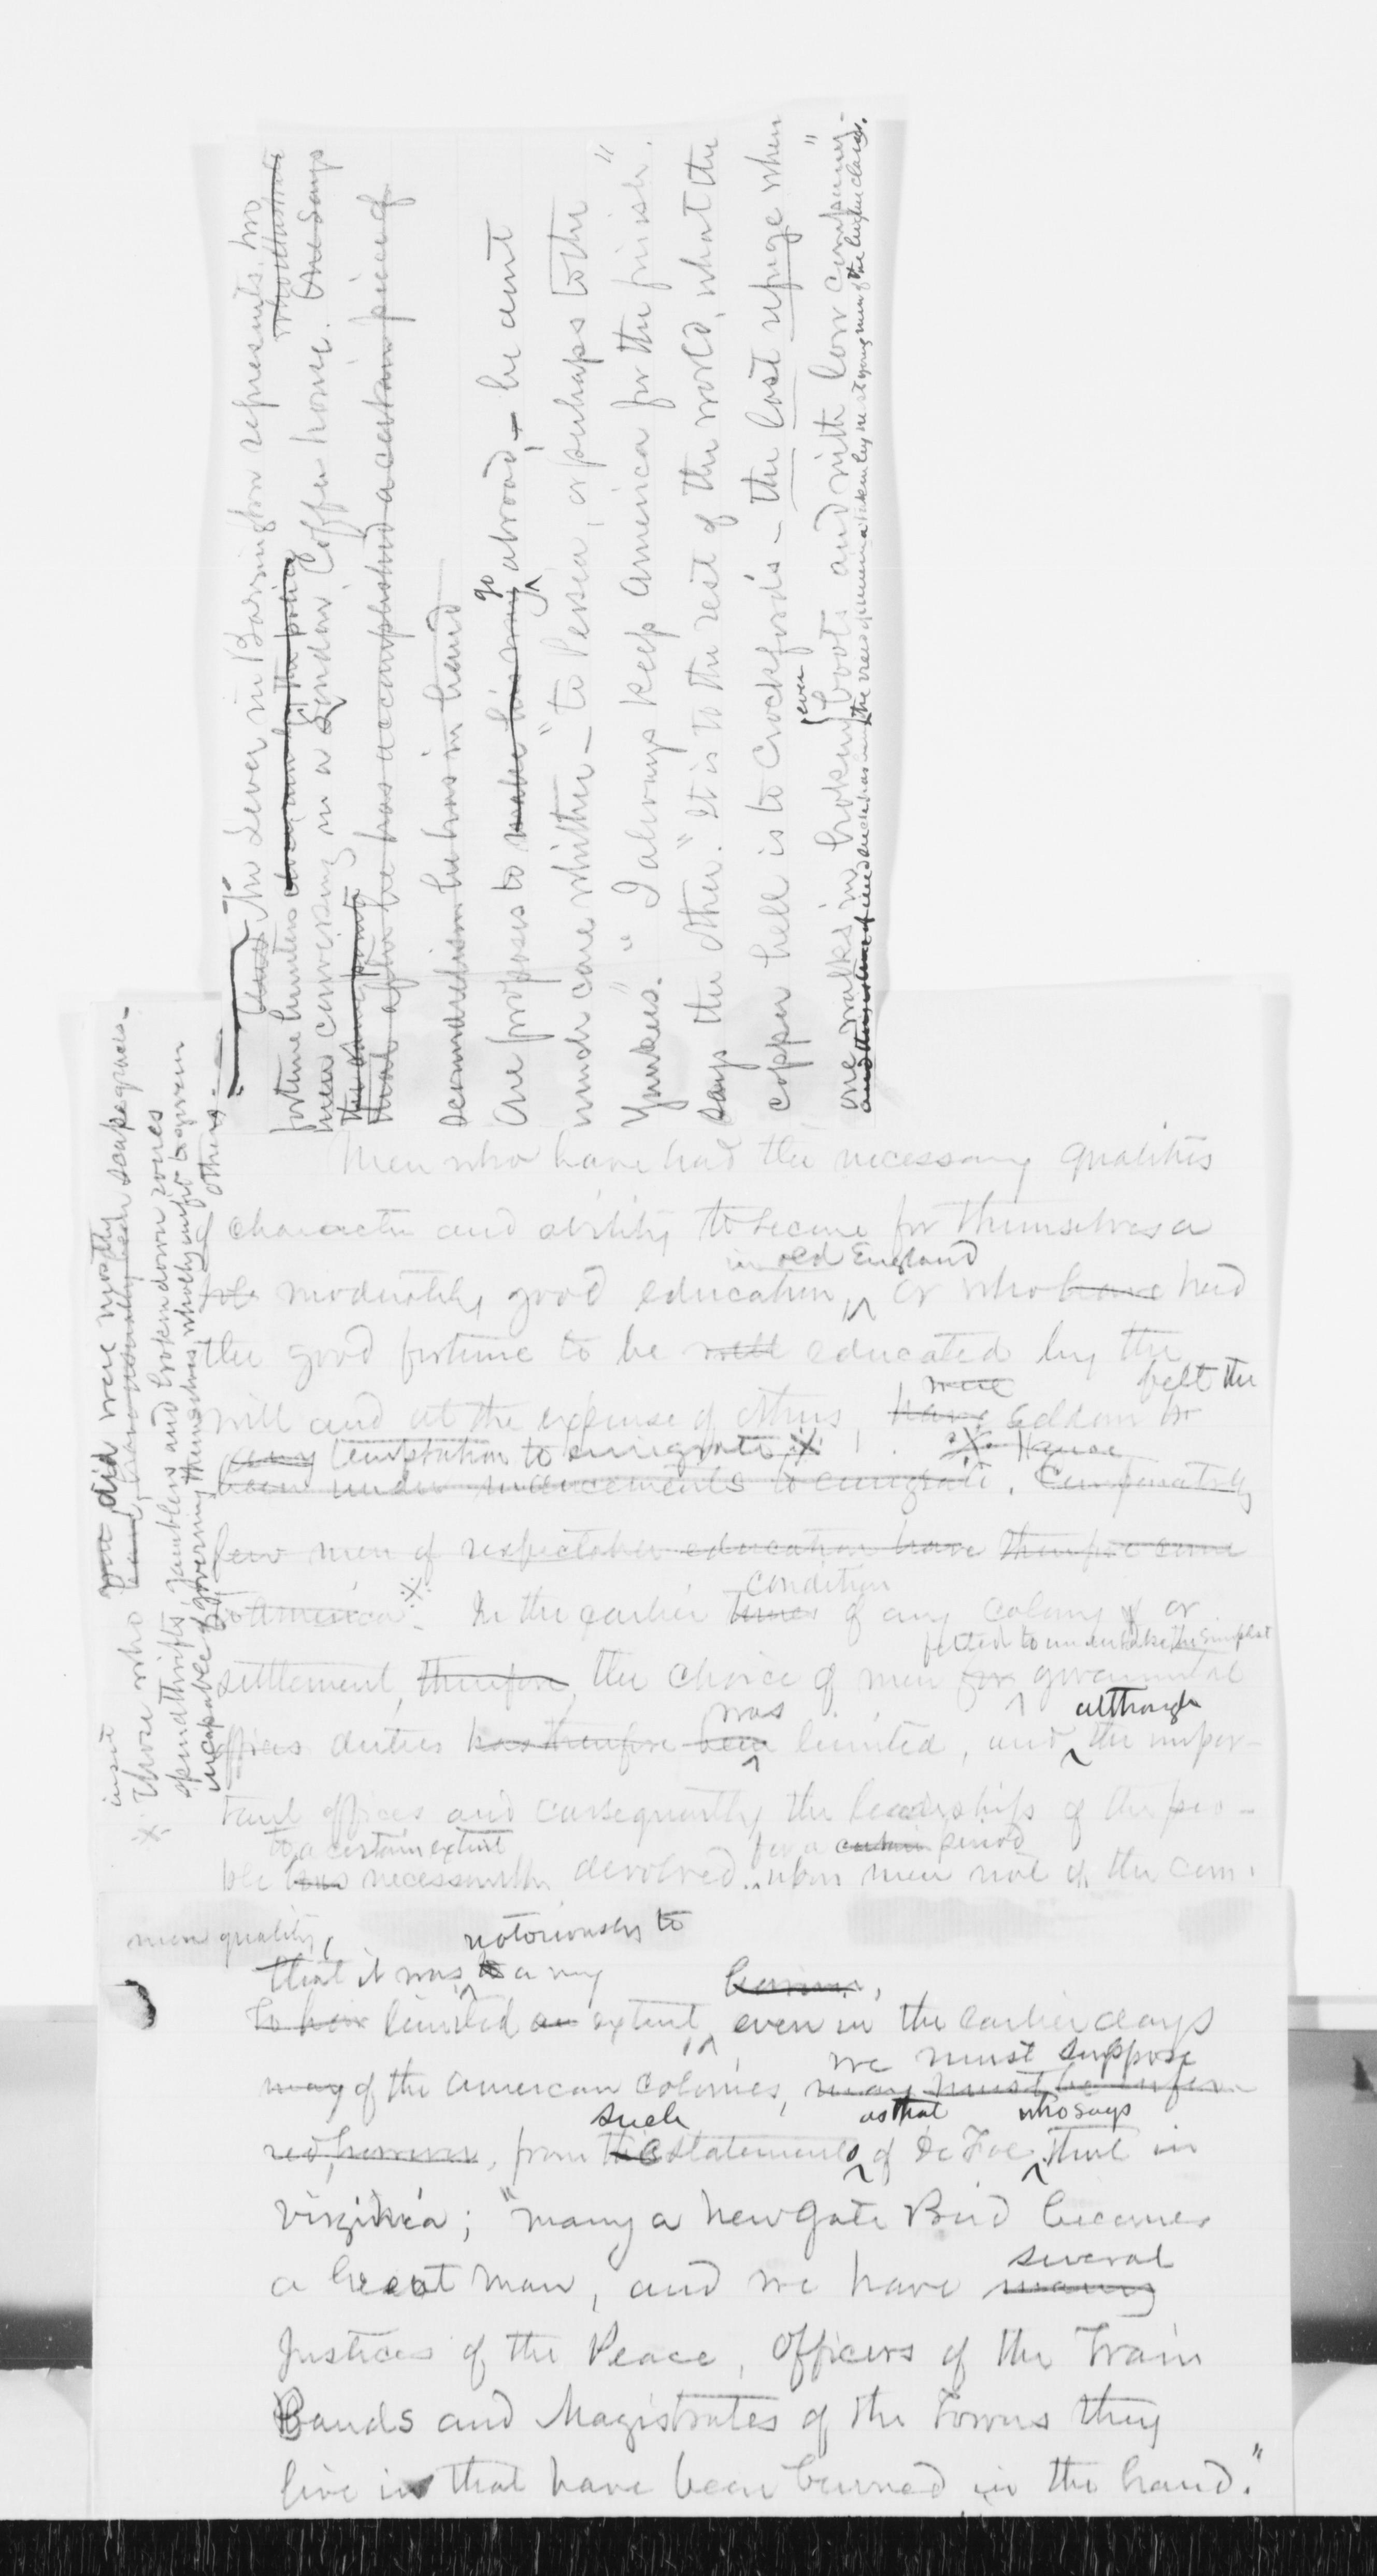 Thus The Lever in Barrington represents two
fortune hunters
who illustrate
men conversing in a London Coffee house. One says
the same point
that after he has accomplished a certain piece of
scoundrelism he has in hand
One proposes to make his way go abroad, - he aint
much care whither - "to Persia, or perhaps to the
Yankees." "I always keep America for the finish".
says the other. "It is to the rest of the world, what the
copper hell is to Crockford's - the last refuge when
one walks in broken boots even and with low company."
Men who have had the necessary qualities
of character and ability to secure for themselves a
in old England
moderately good education, or who have had
the good fortune to be well educated by the
will and at the expense of others, have were seldom felt the
any temptation to emigrate. Hence
been under inducements to emigrate. Comparatively
few men of respectable education have therefore come
to America. In the earlier times condition of any colony or
fitted to undertake the simplest
settlement, therefore, the choice of men for governmental
offices duties has therefore been was limited, and although the impor-
tant offices and consequently the leadership of the peo-
to a certain extent for a certain period
ple has necessarily devolved upon men not of the com-
mon quality,
insert
Those who did were mostly scapegraces -
spendthrifts, gamblers and broken down roués
incapable of governing themselves, wholly unfit to govern
others.
that it was notoriously to a very
limited an extent, even in the earlier days
we must suppose
may of the American Colonies, may must be infer-
red, however, from such statements as that of De Foe who says that in
Virginia; "many a Newgate Bird becomes
a Great man, and we have many several
Justices of the Peace, Officers of the Train
Bands and Magistrates of the Towns they
live in that have been burned in the hand."